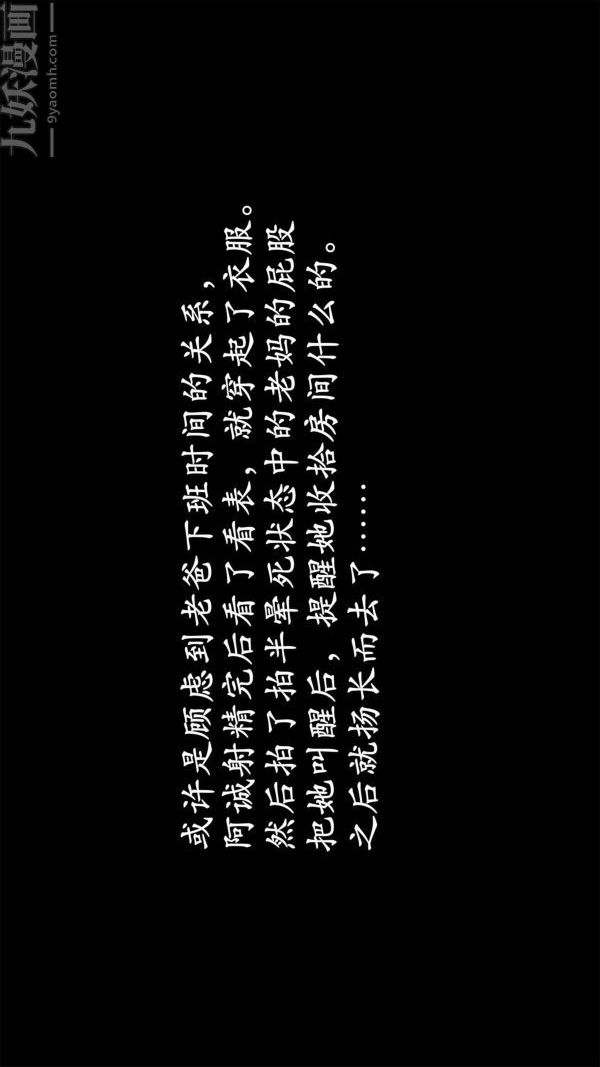 九妖漫画
9yaomh.com
或许是顾虑到老爸下班时间的关系，
阿诚射精完后看了看表，就穿起了衣服。
然后拍了拍半晕死状态中的老妈的屁股
把她叫醒后，提醒她收拾房间什么的。
之后就扬长而去了……